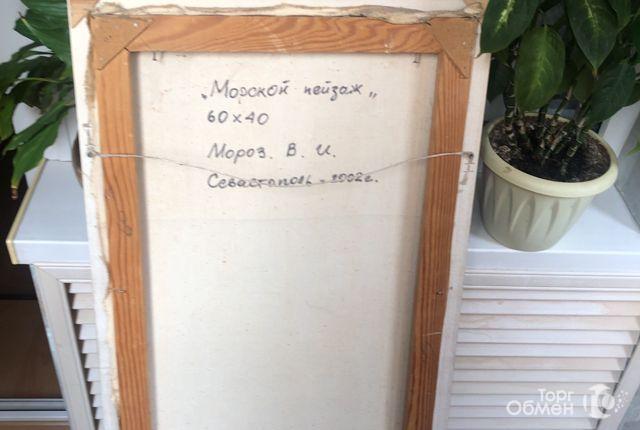 „Морской пейзаж„
60х40
Мороз. В. И.
Севастополь - 2002г.
Торг
Обмен